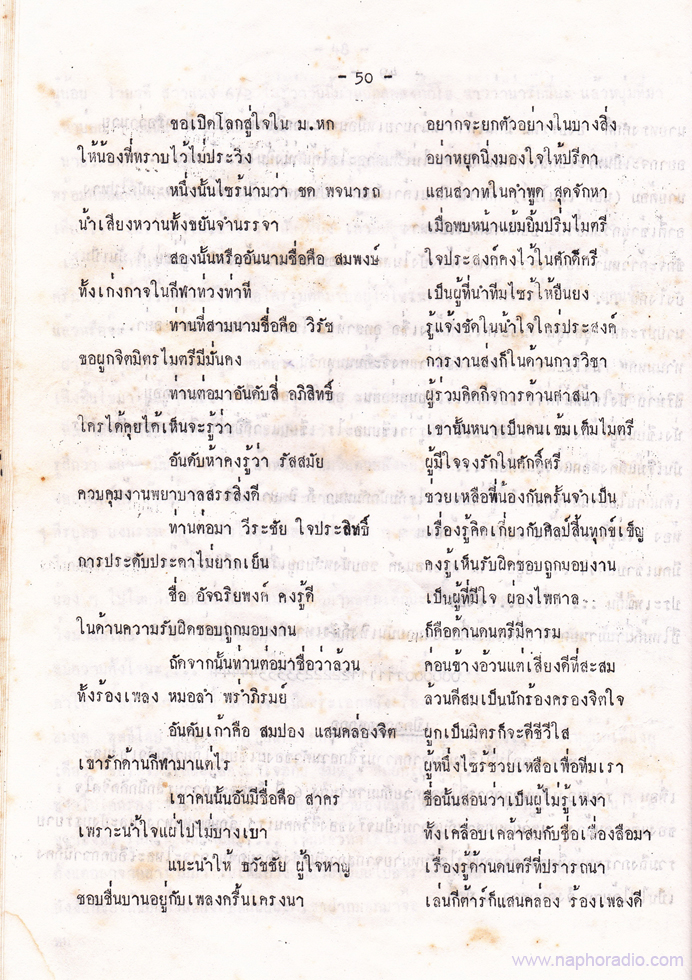 - 50 -
ขอเปิดโลกสู่ใจใน ม.หก อยากจะยกตัวอย่างในบางสิ่ง
ให้น้องที่ทราบไว้ไม่ประวิง อย่าหยุดนิ่งมองใจให้ปรีดา
หนึ่งนั้นไซร้นามว่า ชด พจนารถ แสนสวาทในคำพูด สุดจักหา
น้ำเสียงหวานทั้งขยันจำนรรจา เมื่อพบหน้าแย้มยิ้มปริ่มไมตรี
สองนั้นหรืออันนามชื่อคือ สมพงษ์ ใจประสงค์คงไว้ในศักดิ์ศรี
ทั้งเก่งกาจในกีฬาท่วงท่าที เป็นผู้ที่นำทีมไซร้ให้ยืนยง
ท่านที่สามนามชื่อคือ วิรัช รู้แจ้งชัดในน้ำใจใคร่ประสงค์
ขอผูกจิตมิตรไมตรีมีมั่นคง การงานส่งก็ในด้านการวิชา
ท่านต่อมาอันดับสี่ อภิสิทธิ์ ผู้ร่วมคิดกิจการด้านศาสนา
ใครได้คุยได้เห็นจะรู้ว่า เขานั้นหนาเป็นคนเข้มเต็มไมตรี
อันดับห้าคงรู้ว่า รัสสมัย ผู้มีใจจงรักในศักดิ์ศรี
ควบคุมงานพยาบาลสรรสิ่งดี ช่วยเหลือพี่น้องกันครั้นจำเป็น
ท่านต่อมา วีระชัย ใจประสิทธิ์ เรื่องรู้คิดเกี่ยวกับศิลป์สิ้นทุกข์เข็ญ
การประดับประดาไม่ยากเย็น คงรู้เห็นรับผิดชอบถูกมอบงาน
ชื่อ อัจฉริยพงค์ คงรู้ดี เป็นผู้ที่มีใจ ผ่องไพศาล
ในด้านความรับผิดชอบถูกมอบงาน ก็คือด้านดนตรีมีคารม
ถัดจากนั้นท่านต่อมาชื่อว่าล้วน ค่อนข้างอ้วนแต่เสี่ยงดีที่สะสม
ทั้งร้องเพลง หมอลำ พร่ำภิรมย์ ล้วนดีสมเป็นนักร้องครองจิตใจ
อันดับเก้าคือ สมปอง แสนคล่องจิต ผูกเป็นมิตรก็จะดีชีวีใส
เขารักด้านกีฬามาแต่ไร ผู้หนึ่งไซร้ช่วยเหลือเพื่อทีมเรา
เขาคนนั้นอันมีชื่อคือ สาคร ชื่อนั้นสอนว่าเป็นผู้ไม่รู้เหงา
เพราะน้ำใจแผ่ไปไม่บางเบา ทั้งเคลือบเคล้าสมกับชื่อเลื่องลือมา
แนะนำให้ ธวัชชัย ผู้ใจหาญ เรื่องรู้ด้านดนตรีที่ปรารถนา
ชอบชื่นบานอยู่กับเพลงครื้นเครงนา เล่นกีต้าร์ก็แสนคล่อง ร้องเพลงดี
www.naphoradio.com